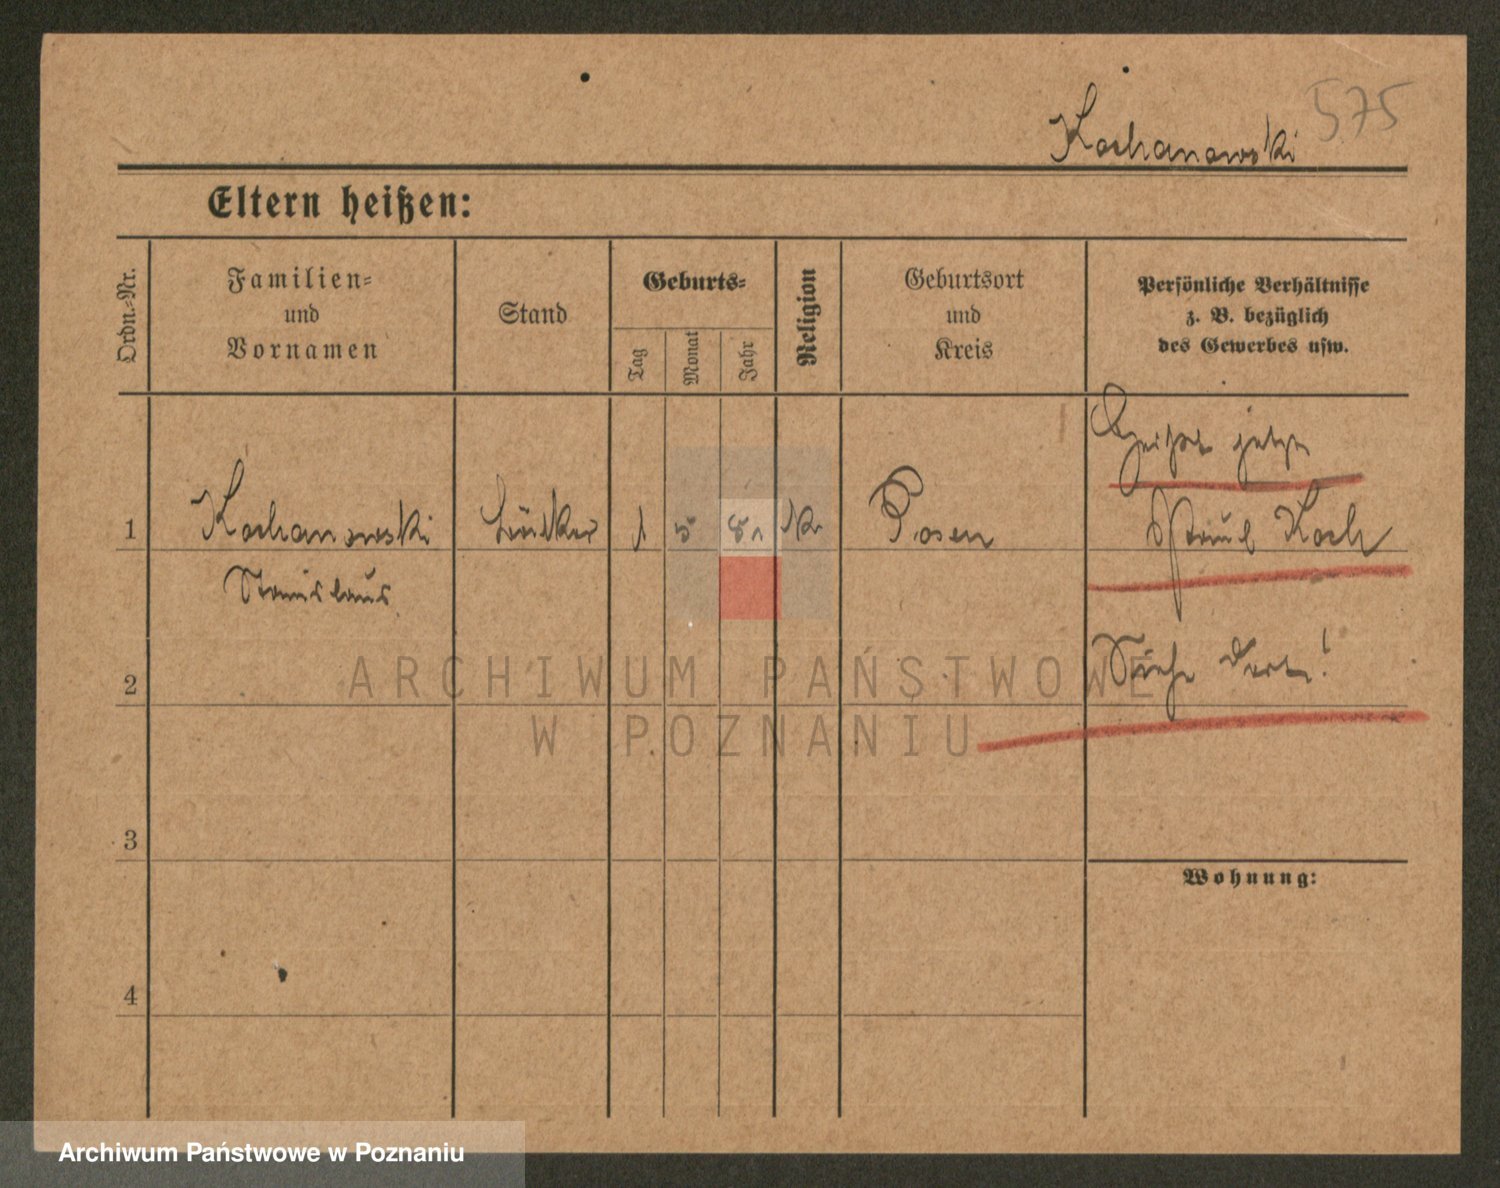 575
Kochanowski
Eltern heißen:
Ordn.-Nr.
Familien-
und
Vornamen
Stand
Geburts-
Tag
Monat
Jahr
Religion
Geburtsort
und
Kreis
Persönliche Verhältnisse
z. B. bezüglich
des Gewerbes usw.
1
Kochanowski
Stanislaus
1
5
Posen
jetzt
Koch
Siehe dort!
2
3
4
Wohnung:
ARCHIWUM PAŃSTWOWE
W POZNANIU
Archiwum Państwowe w Poznaniu